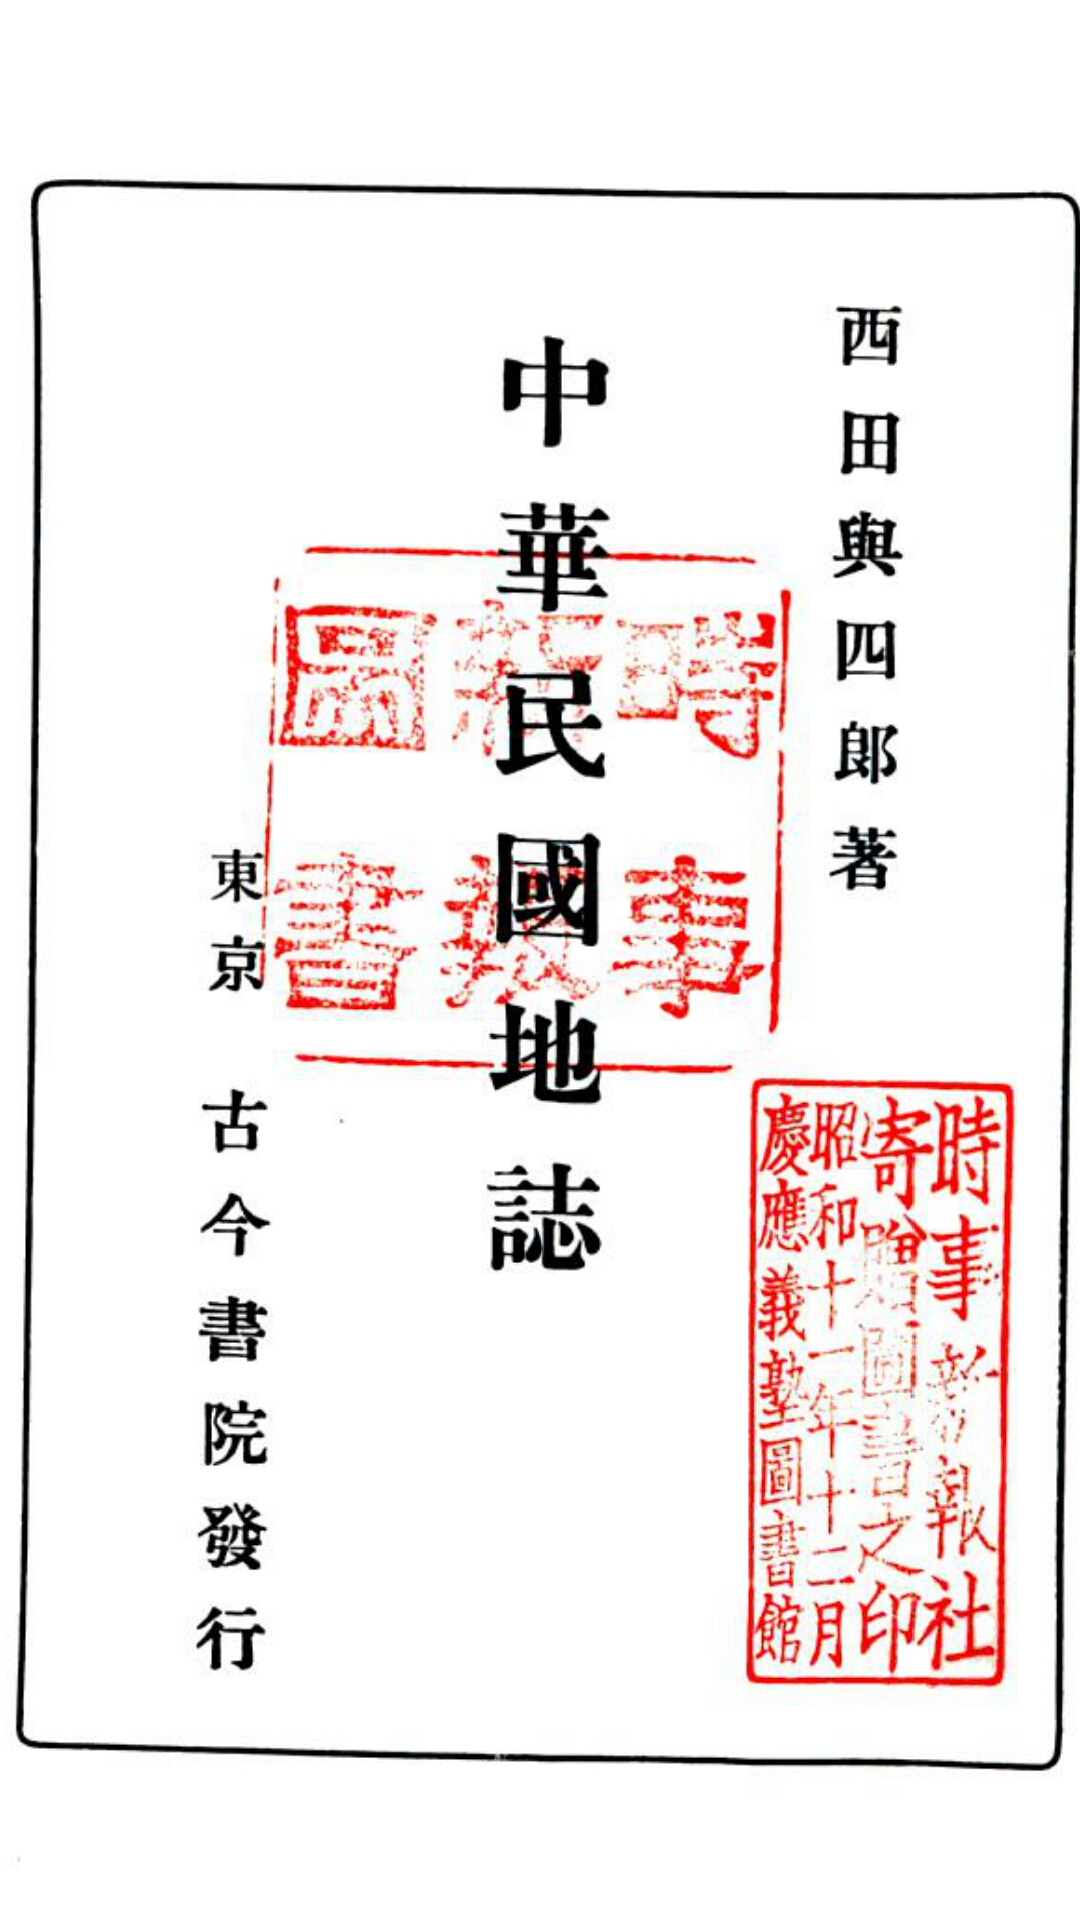 西田與四郎著
中華民國地誌
東京 古今書院發行
時事
新報
圖書
時事新報社
寄贈圖書之印
昭和十一年十二月
慶應義塾圖書館